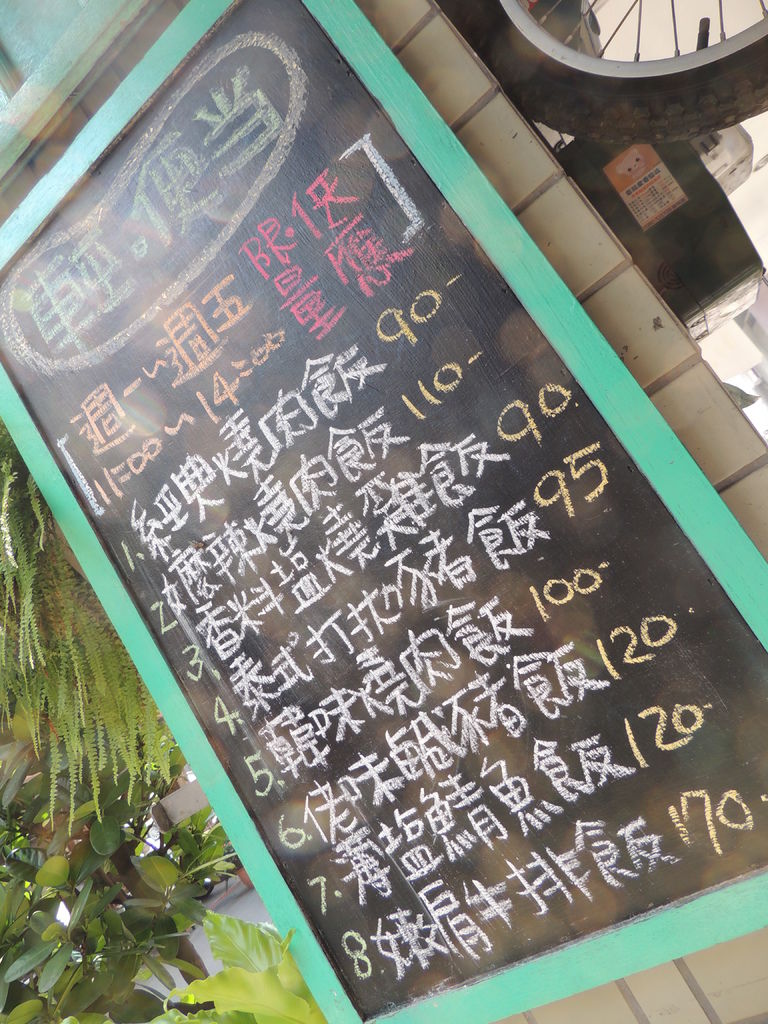 輕。便当
週一~週五
11:00~14:00
限量供應
1. 經典燒肉飯 90-
2. 麻辣燒肉飯 110-
3. 香料塩燒雞飯 90.
4. 泰式打拋豬飯 95
5. 韓味燒肉飯 100-
6. 佬味鹹豬飯 120-
7. 薄塩鯖魚飯 120-
8. 嫩肩牛排飯 170-